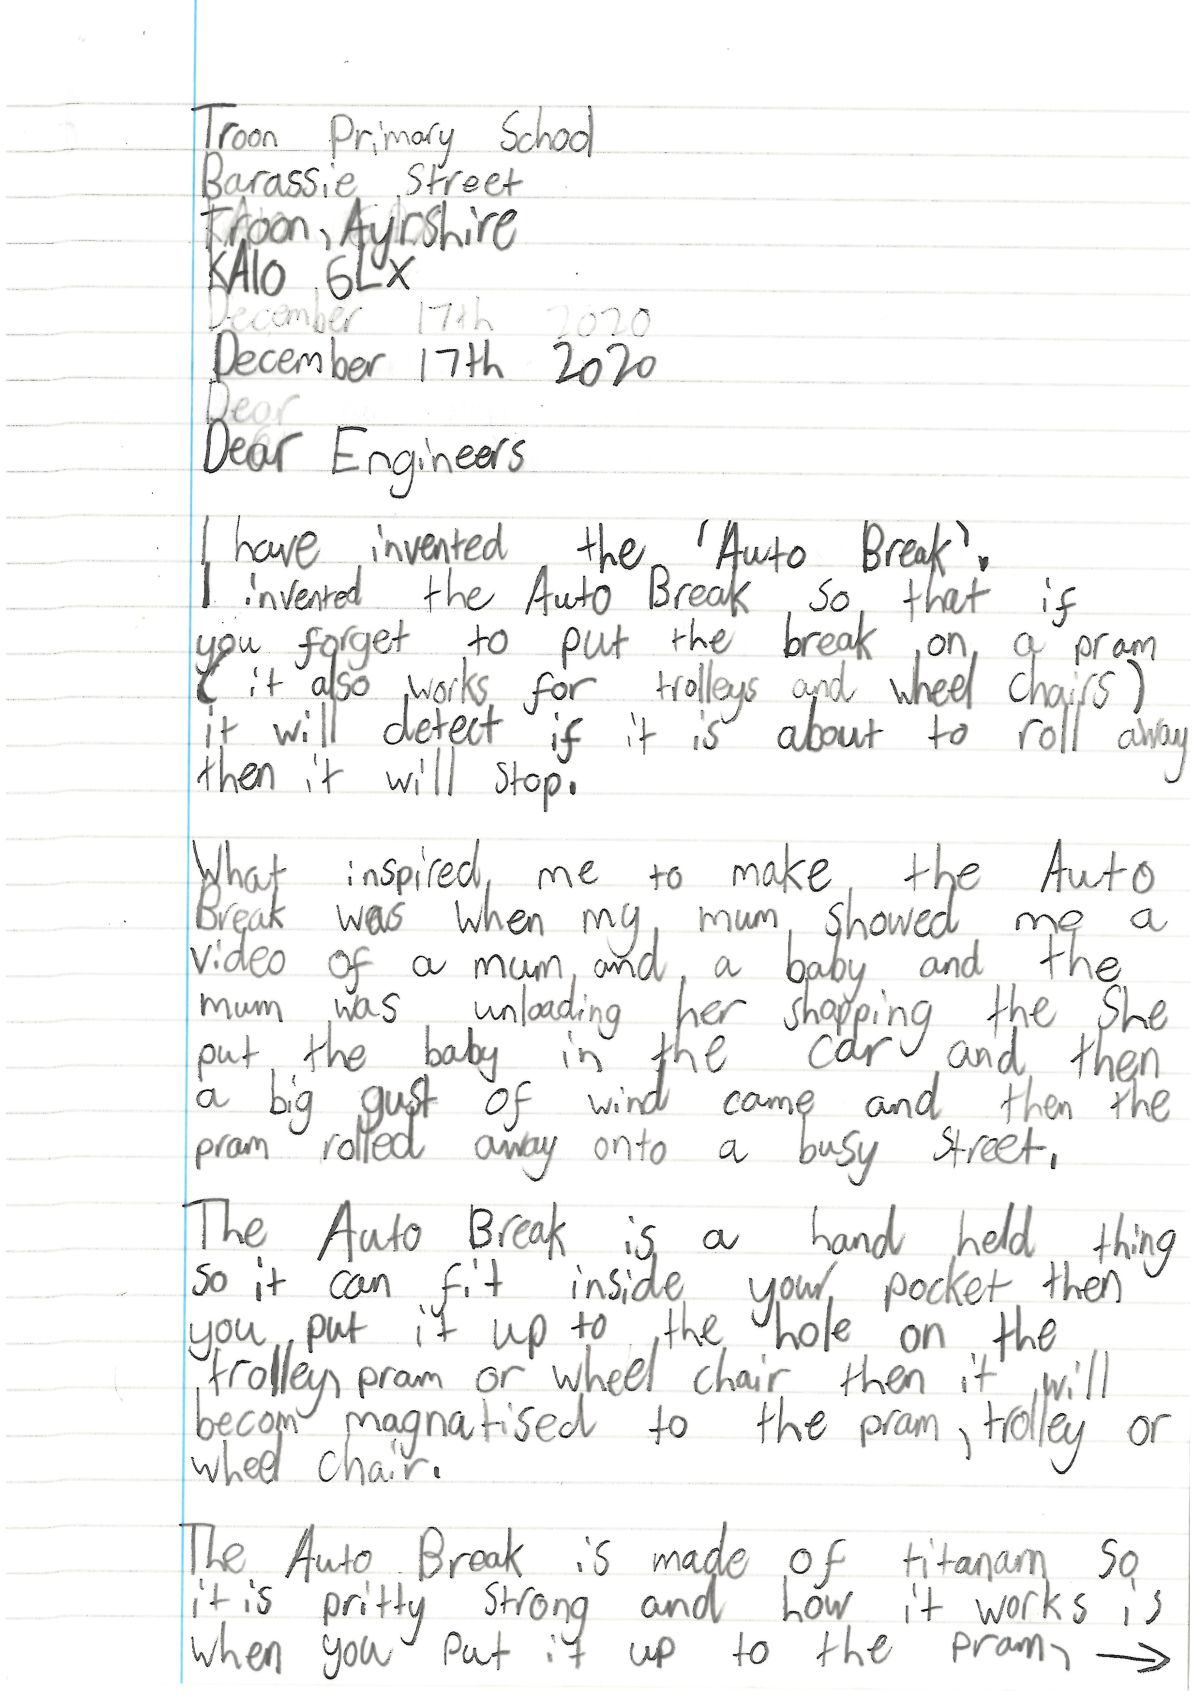 Troon Primary School
Barassie Street
Troon, Ayrshire
KA10 6LX
December 17th 2020
December 17th 2020
Dear
Dear Engineers
I have invented the 'Auto Break'.
I invented the Auto Break so that if
you forget to put the break on a pram
( it also works for trolleys and wheel chairs)
it will detect if it is about to roll away
then it will stop.
What inspired me to make the Auto
Break was when my mum showed me a
video of a mum and a baby and the
mum was unloading her shopping the She
put the baby in the car and then
a big gust of wind came and then the
pram rolled away onto a busy street.
The Auto Break is a hand held thing
so it can fit inside your pocket then
you put it up to the hole on the
trolley, pram or wheel chair then it will
becom magnatised to the pram, trolley or
wheel chair.
The Auto Break is made of titanam so
it is pritty strong and how it works is
when you put it up to the pram, →